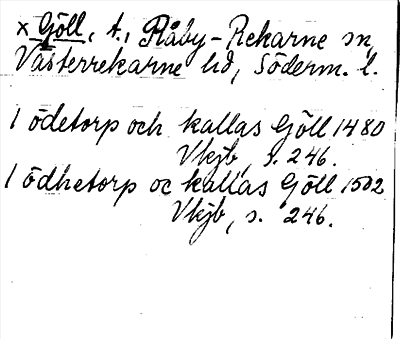 x Göll, t., Råby-Rekarne sn,
Västerrekarne hd, Söderm. l.
1 ödetorp och kallas Göll 1480
Vkjb, s. 246.
1 ödhetorp oc kallas Göll 1502
Vkjb, s. 246.